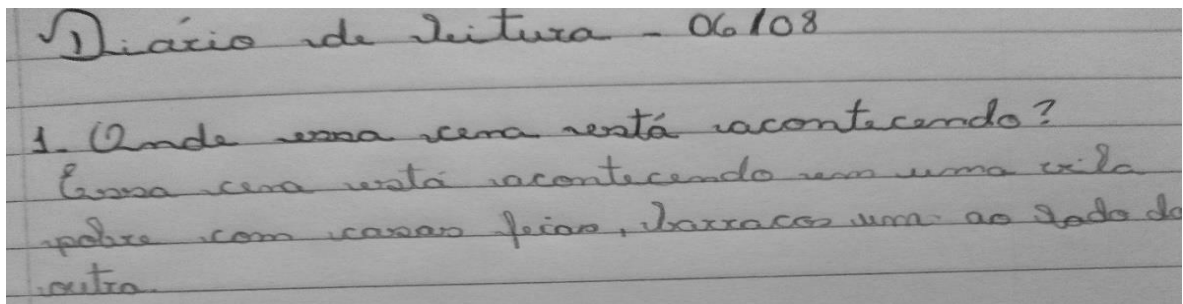 Diário de leitura - 06/08
1. Onde essa cena está acontecendo?
Essa cena está acontecendo em uma vila
pobre com casas feias, barracos um ao lado do
outro.